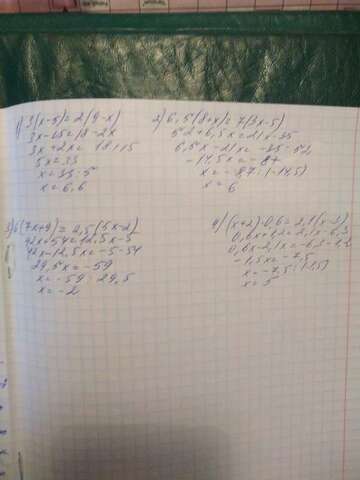 1) 3(x-5)=2(9-x)
3x-15=18-2x
3x+2x=18+15
5x=33
x=33:5
x=6,6
2) 6,5(8+x)=7(3x-5)
52+6,5x=21x-35
6,5x-21x=-35-52
-14,5x=-87
x=-87:(-14,5)
x=6
3) 6(7x+9)=2,5(5x-2)
42x+54=12,5x-5
42x-12,5x=-5-54
29,5x=-59
x=-59:29,5
x=-2
4) (x+2)·0,6=2,1(x-3)
0,6x+1,2=2,1x-6,3
0,6x-2,1x=-6,3-1,2
-1,5x=-7,5
x=-7,5:(-1,5)
x=5